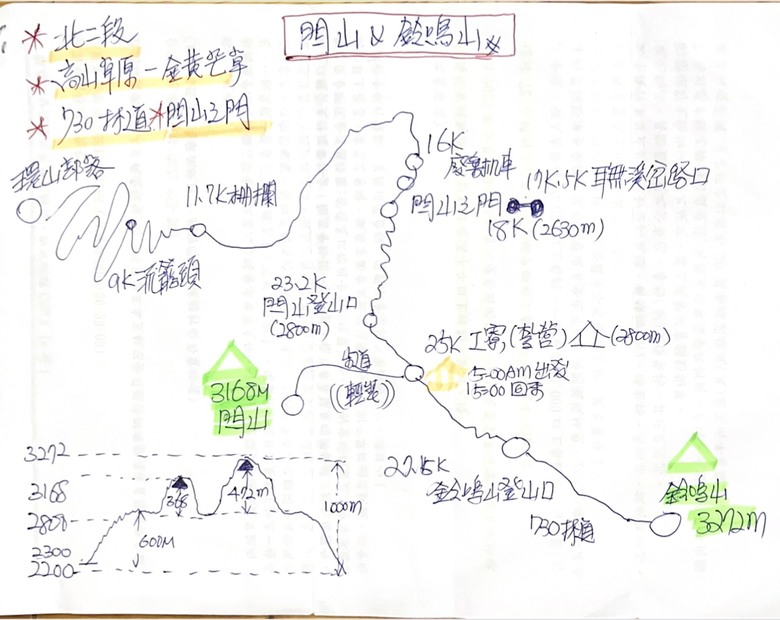 閂山 & 鈴鳴山
北二段
高山草原-金黃芒草
730林道 閂山之門
環山部落
9K
11.7K柵欄
16K
廢棄机車
17K.5K 耳無溪岔路口
閂山之門
18K (2630m)
23.2K
閂山登山口
(2800m)
25K 工寮(紮營) (2800m)
5:00AM 出發
15:00 回來
(輕裝)
3168M
閂山
27.5K
鈴鳴山登山口
730林道
鈴鳴山
3272m
3272
3168
2800
2300
2200
368
472m
600M
1000m